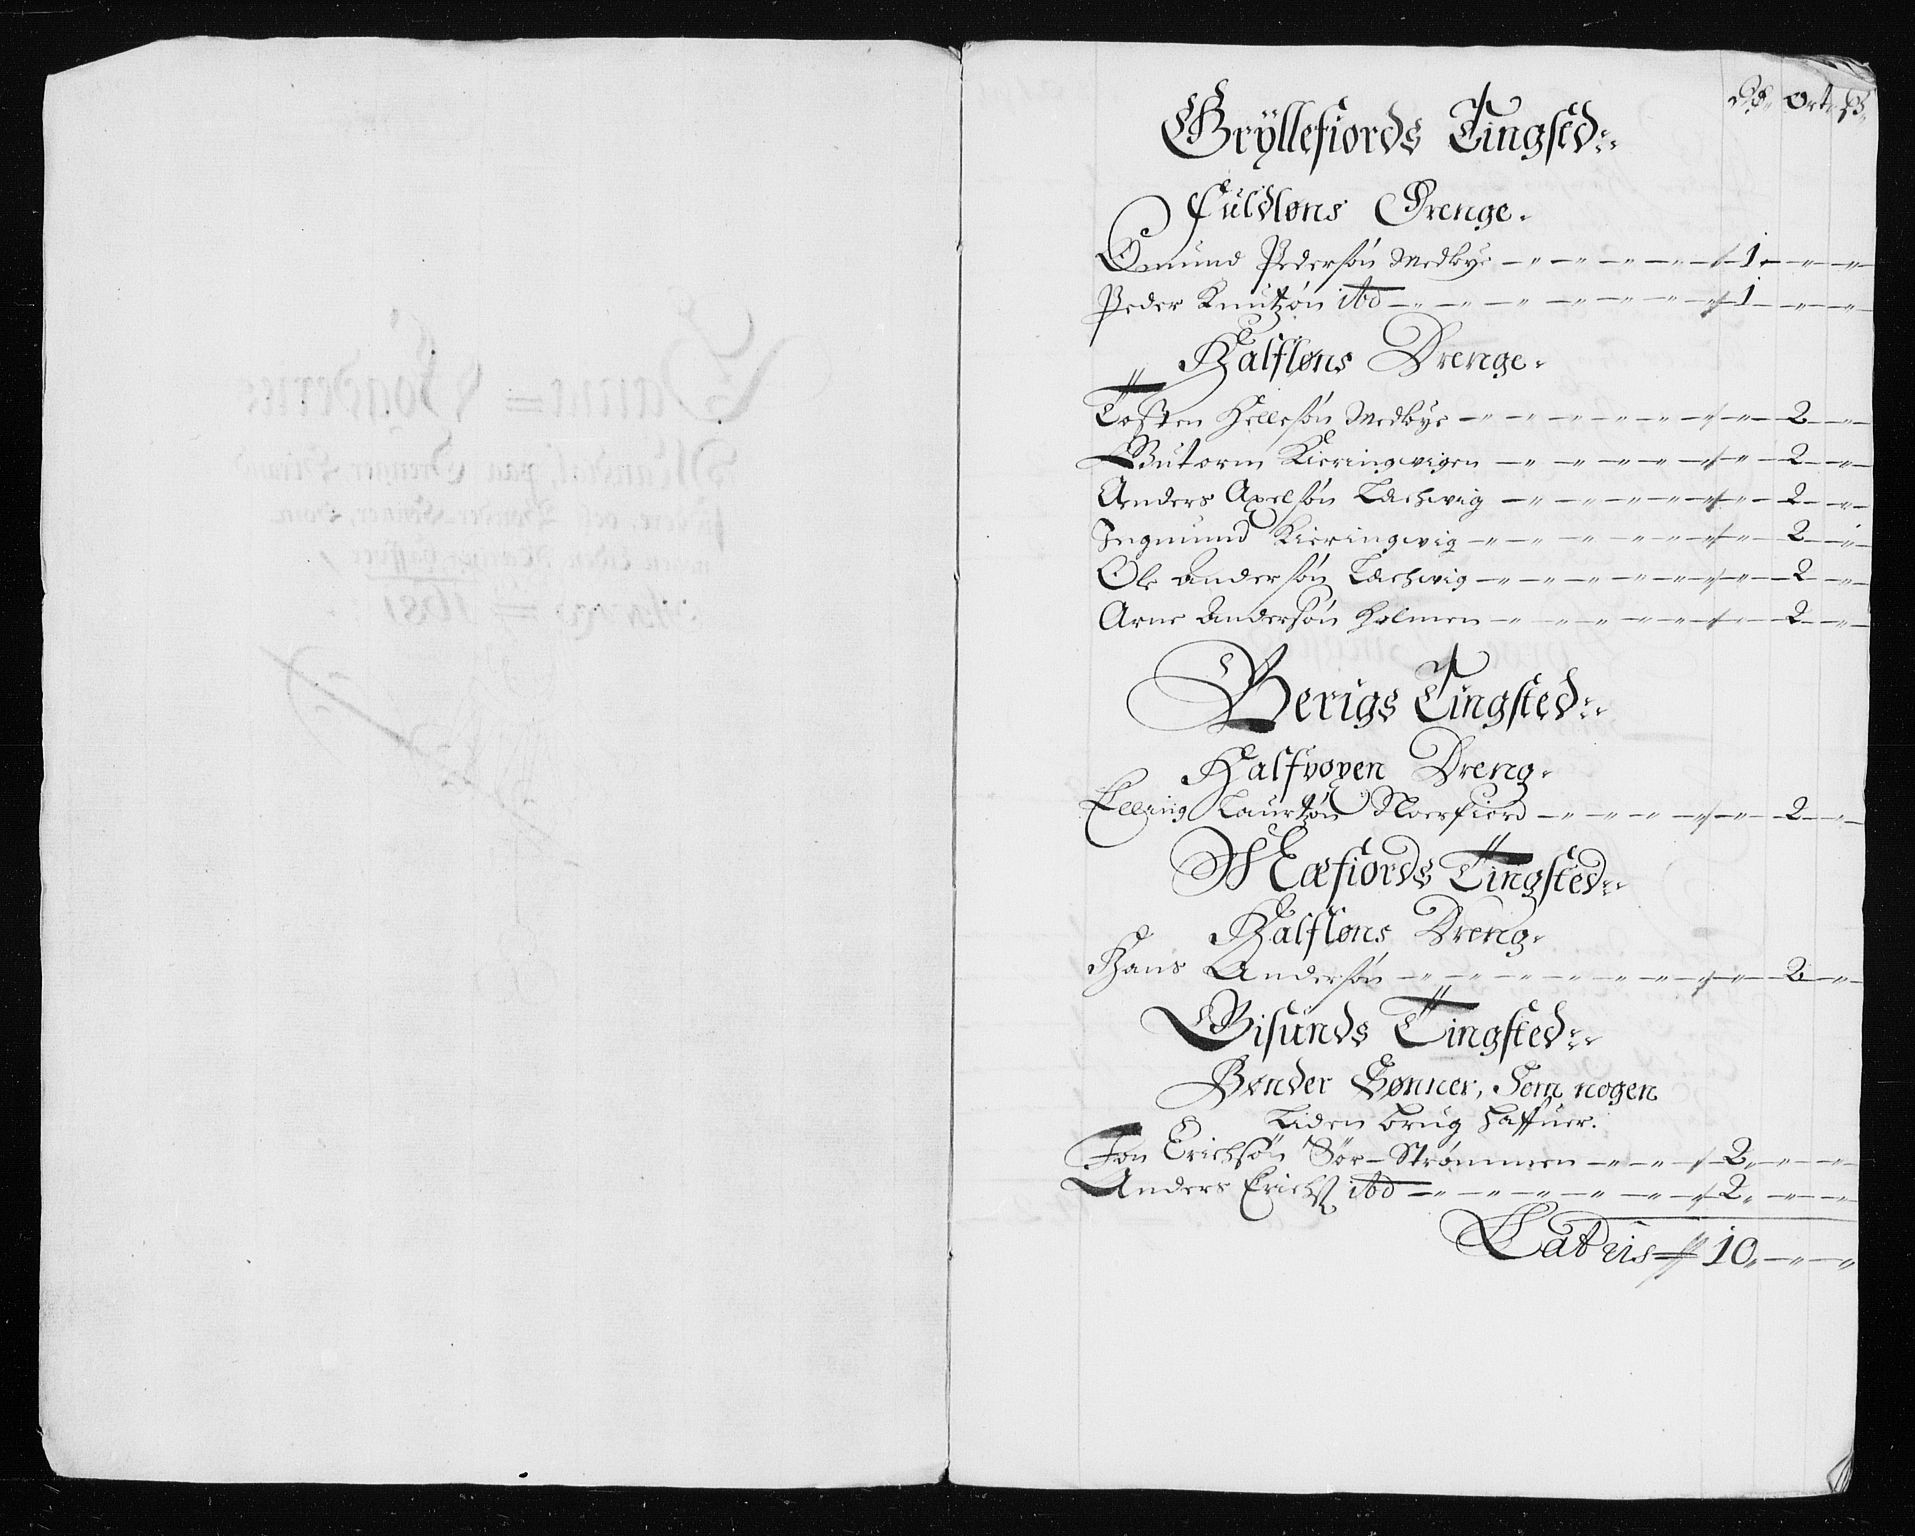 Rd. Ort. ß.
Gryllefiords Tingsted
Fuldløns Drenge.
Omund Pedersøn Medbye 1
Peder Knutzøn ibd 1
Halfløns Drenge.
Tosten Hellesøn Medbye 2
Gutorm Kieringvigen 2
Anders Axelsøn Laehwig 2
Ingmund Kieringwig 2
Ole Andersøn Laehwig 2
Arne Andersøn Holmen 2
Bergs Tingsted
Halfvoxen Dreng.
Elling Laurtzøn Noerfiord 2
Mæfiords Tingsted
Halfløns Dreng.
Hans Andersøn 2
Gisunds Tingsted
Bønder Sønner, Som nogen
Liden brug haffuer.
Jon Erichsøn Sør-Strømmen 2
Anders Erichs ibd 2
Latus 10